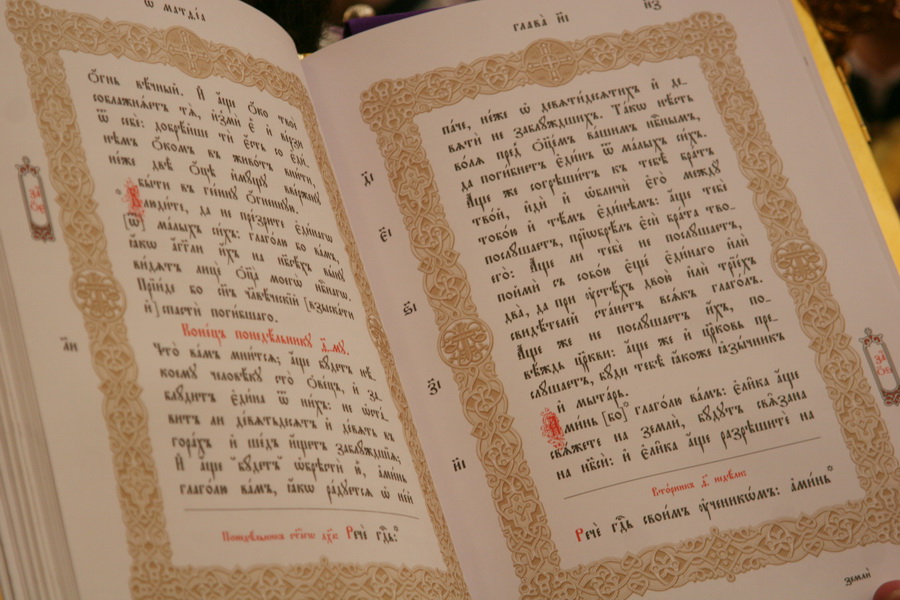 Ѿ матѳ́еа
Ѻ҆́гнь вѣ́чный. И҆ а҆́ще ѻ҆́ко твоѐ
соблажнѧ́етъ тѧ̀, и҆змѝ є҆̀ и҆ ве́рзи
ѿ себє̀: добрѣ́йше тѝ є҆́сть со є҆ди́-
нѣмъ ѻ҆́комъ въ живо́тъ вни́ти,
не́же двѣ̀ ѻ҆́цѣ и҆мꙋ́щꙋ вве́рженꙋ
бы́ти въ гее́ннꙋ ѻ҆́гненнꙋю.
Блюди́те, да не пре́зрите є҆ди́нагѡ
[ѿ] ма́лыхъ си́хъ: глаго́лю бо ва́мъ,
ꙗ҆́кѡ а҆́гг҃ли и҆́хъ на нб҃сѣ́хъ вы́нꙋ
ви́дѧтъ лицѐ ѻ҆ц҃а̀ моегѡ̀ нбⷭ҇нагѡ.
Прїи́де бо сн҃ъ чл҃вѣ́ческїй [взыска́ти
и҆] спастѝ поги́бшаго.
Коне́цъ понедѣ́льникꙋ д҃.мꙋ.
Что̀ ва́мъ мни́тсѧ; а҆́ще бꙋ́детъ нѣ́-
коемꙋ человѣ́кꙋ сто̀ ѻ҆ве́цъ, и҆ за-
блꙋ́дитъ є҆ди́на ѿ ни́хъ: не ѡ҆ста́-
витъ ли де́вѧтьдесѧтъ и҆ де́вѧть въ
гора́хъ и҆ ше́дъ и҆́щетъ заблꙋ́ждшїѧ;
И҆ а҆́ще бꙋ́детъ ѡ҆брѣстѝ ю҆̀, а҆ми́нь
глаго́лю ва́мъ, ꙗ҆́кѡ ра́дꙋетсѧ ѡ҆ не́й
Понедѣ́льника ст҃а́гѡ дх҃а Речѐ гдⷭ҇ь:
за҃
н҃и
глава̀ и҃і
н҃з
па́че, не́же ѡ҆ девѧти́десѧтихъ и҆ де-
вѧтѝ не заблꙋ́ждшихъ. Та́кѡ нѣ́сть
во́лѧ пред̾ ѻ҆ц҃е́мъ ва́шимъ нбⷭ҇нымъ,
да поги́бнетъ є҆ди́нъ ѿ ма́лыхъ си́хъ.
А҆́ще же согрѣши́тъ къ тебѣ̀ бра́тъ
тво́й, и҆дѝ и҆ ѡ҆бличѝ є҆го̀ междꙋ̀
тобо́ю и҆ тѣ́мъ є҆ди́нѣмъ: а҆́ще тебѐ
послꙋ́шаетъ, прїѡбрѣ́лъ є҆сѝ бра́та тво-
его̀: А҆́ще ли тебє̀ не послꙋ́шаетъ,
поимѝ съ собо́ю є҆щѐ є҆ди́наго и҆лѝ
два̀, да при ᲂу҆стѣ́хъ двою̀ и҆лѝ трїе́хъ
свидѣ́телей ста́нетъ всѧ́къ глаго́лъ.
А҆́ще же не послꙋ́шаетъ и҆́хъ, по-
вѣ́ждь цр҃кви: а҆́ще же и҆ цр҃ковь пре-
слꙋ́шаетъ, бꙋ́ди тебѣ̀ ꙗ҆́коже ꙗ҆зы́чникъ
и҆ мыта́рь.
А҆ми́нь [бо] глаго́лю ва́мъ: є҆ли̑ка а҆́ще
свѧ́жете на землѝ, бꙋ́дꙋтъ свѧ̑зана
на нб҃сѝ: и҆ є҆ли̑ка а҆́ще разрѣши́те на
Вто́рникъ д҃. недѣ́ли:
Речѐ гдⷭ҇ь свои̑мъ ᲂу҆ченикѡ́мъ: а҆ми́нь
д҃і
є҃і
ѕ҃і
з҃і
и҃і
землѝ